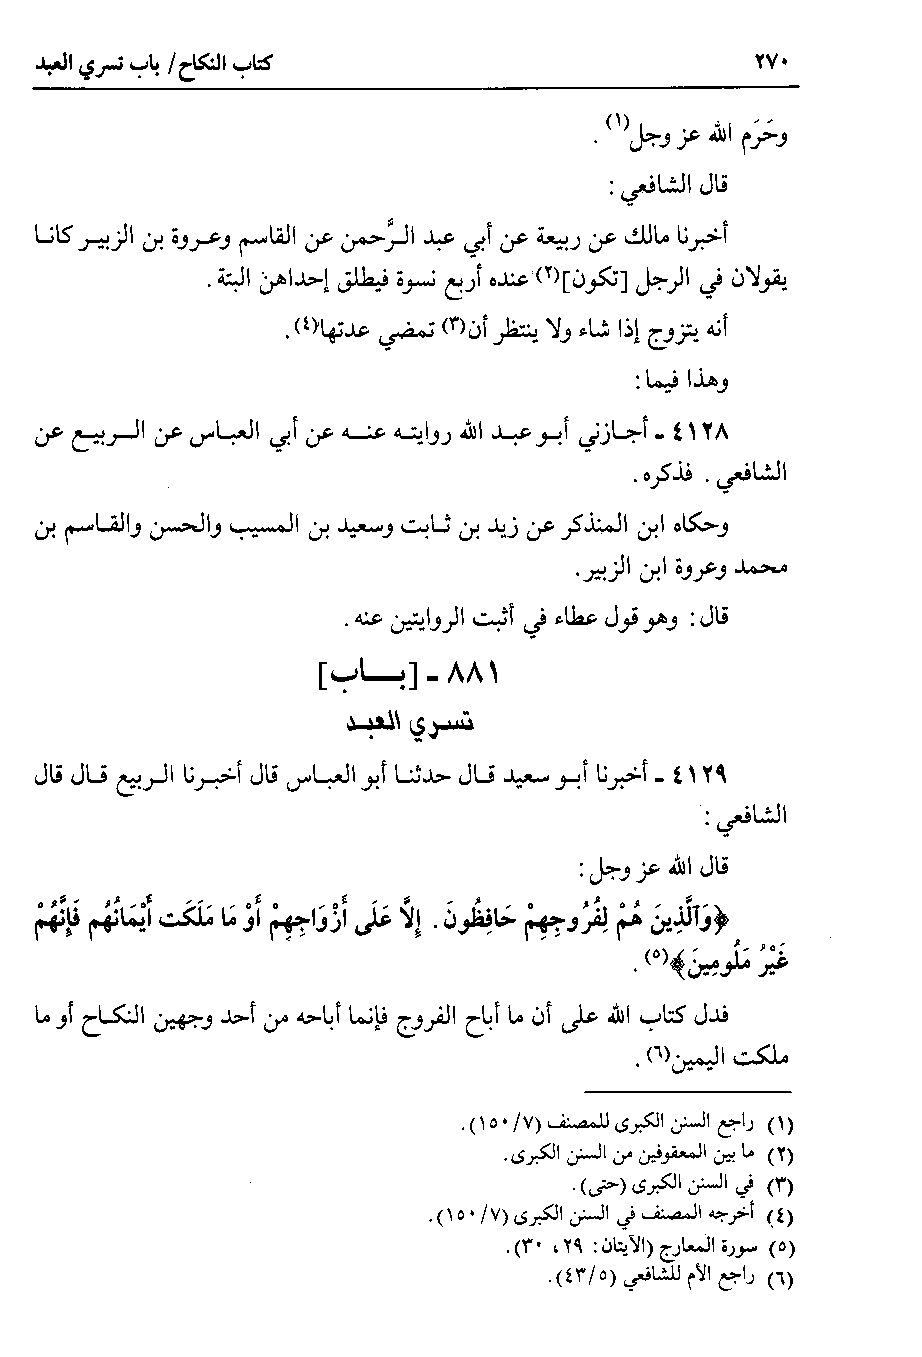 ٢٧٠ كتاب النكاح/ باب تسري العبد
وحَرَم الله عز وجل(١).
قال الشافعي:
أخبرنا مالك عن ربيعة عن أبي عبد الرَّحمن عن القاسم وعروة بن الزبير كانا
يقولان في الرجل [تكون](٢) عنده أربع نسوة فيطلق إحداهن البتة.
أنه يتزوج إذا شاء ولا ينتظر أن(٣) تمضي عدتها(٤).
وهذا فيما:
٤١٢٨ - أجازني أبو عبد الله روايته عنه عن أبي العباس عن الربيع عن
الشافعي. فذكره.
وحكاه ابن المنذكر عن زيد بن ثابت وسعيد بن المسيب والحسن والقاسم بن
محمد وعروة ابن الزبير.
قال: وهو قول عطاء في أثبت الروايتين عنه.
٨٨١ - [باب]
تسري العبد
٤١٢٩ - أخبرنا أبو سعيد قال حدثنا أبو العباس قال أخبرنا الربيع قال قال
الشافعي:
قال الله عز وجل:
﴿وَٱلَّذِينَ هُمْ لِفُرُوجِهِمْ حَافِظُونَ. إِلَّا عَلَى أَزْوَاجِهِمْ أَوْ مَا مَلَكَت أَيْمَانُهُم فَإِنَّهُمْ
غَيْرُ مَلُومِينَ﴾(٥).
فدل كتاب الله على أن ما أباح الفروج فإنما أباحه من أحد وجهين النكاح أو ما
ملكت اليمين(٦).
(١) راجع السنن الكبرى للمصنف (٧/ ١٥٠).
(٢) ما بين المعقوفين من السنن الكبرى.
(٣) في السنن الكبرى (حتى).
(٤) أخرجه المصنف في السنن الكبرى (٧/ ١٥٠).
(٥) سورة المعارج (الآيتان: ٢٩، ٣٠).
(٦) راجع الأم للشافعي (٥/ ٤٣).